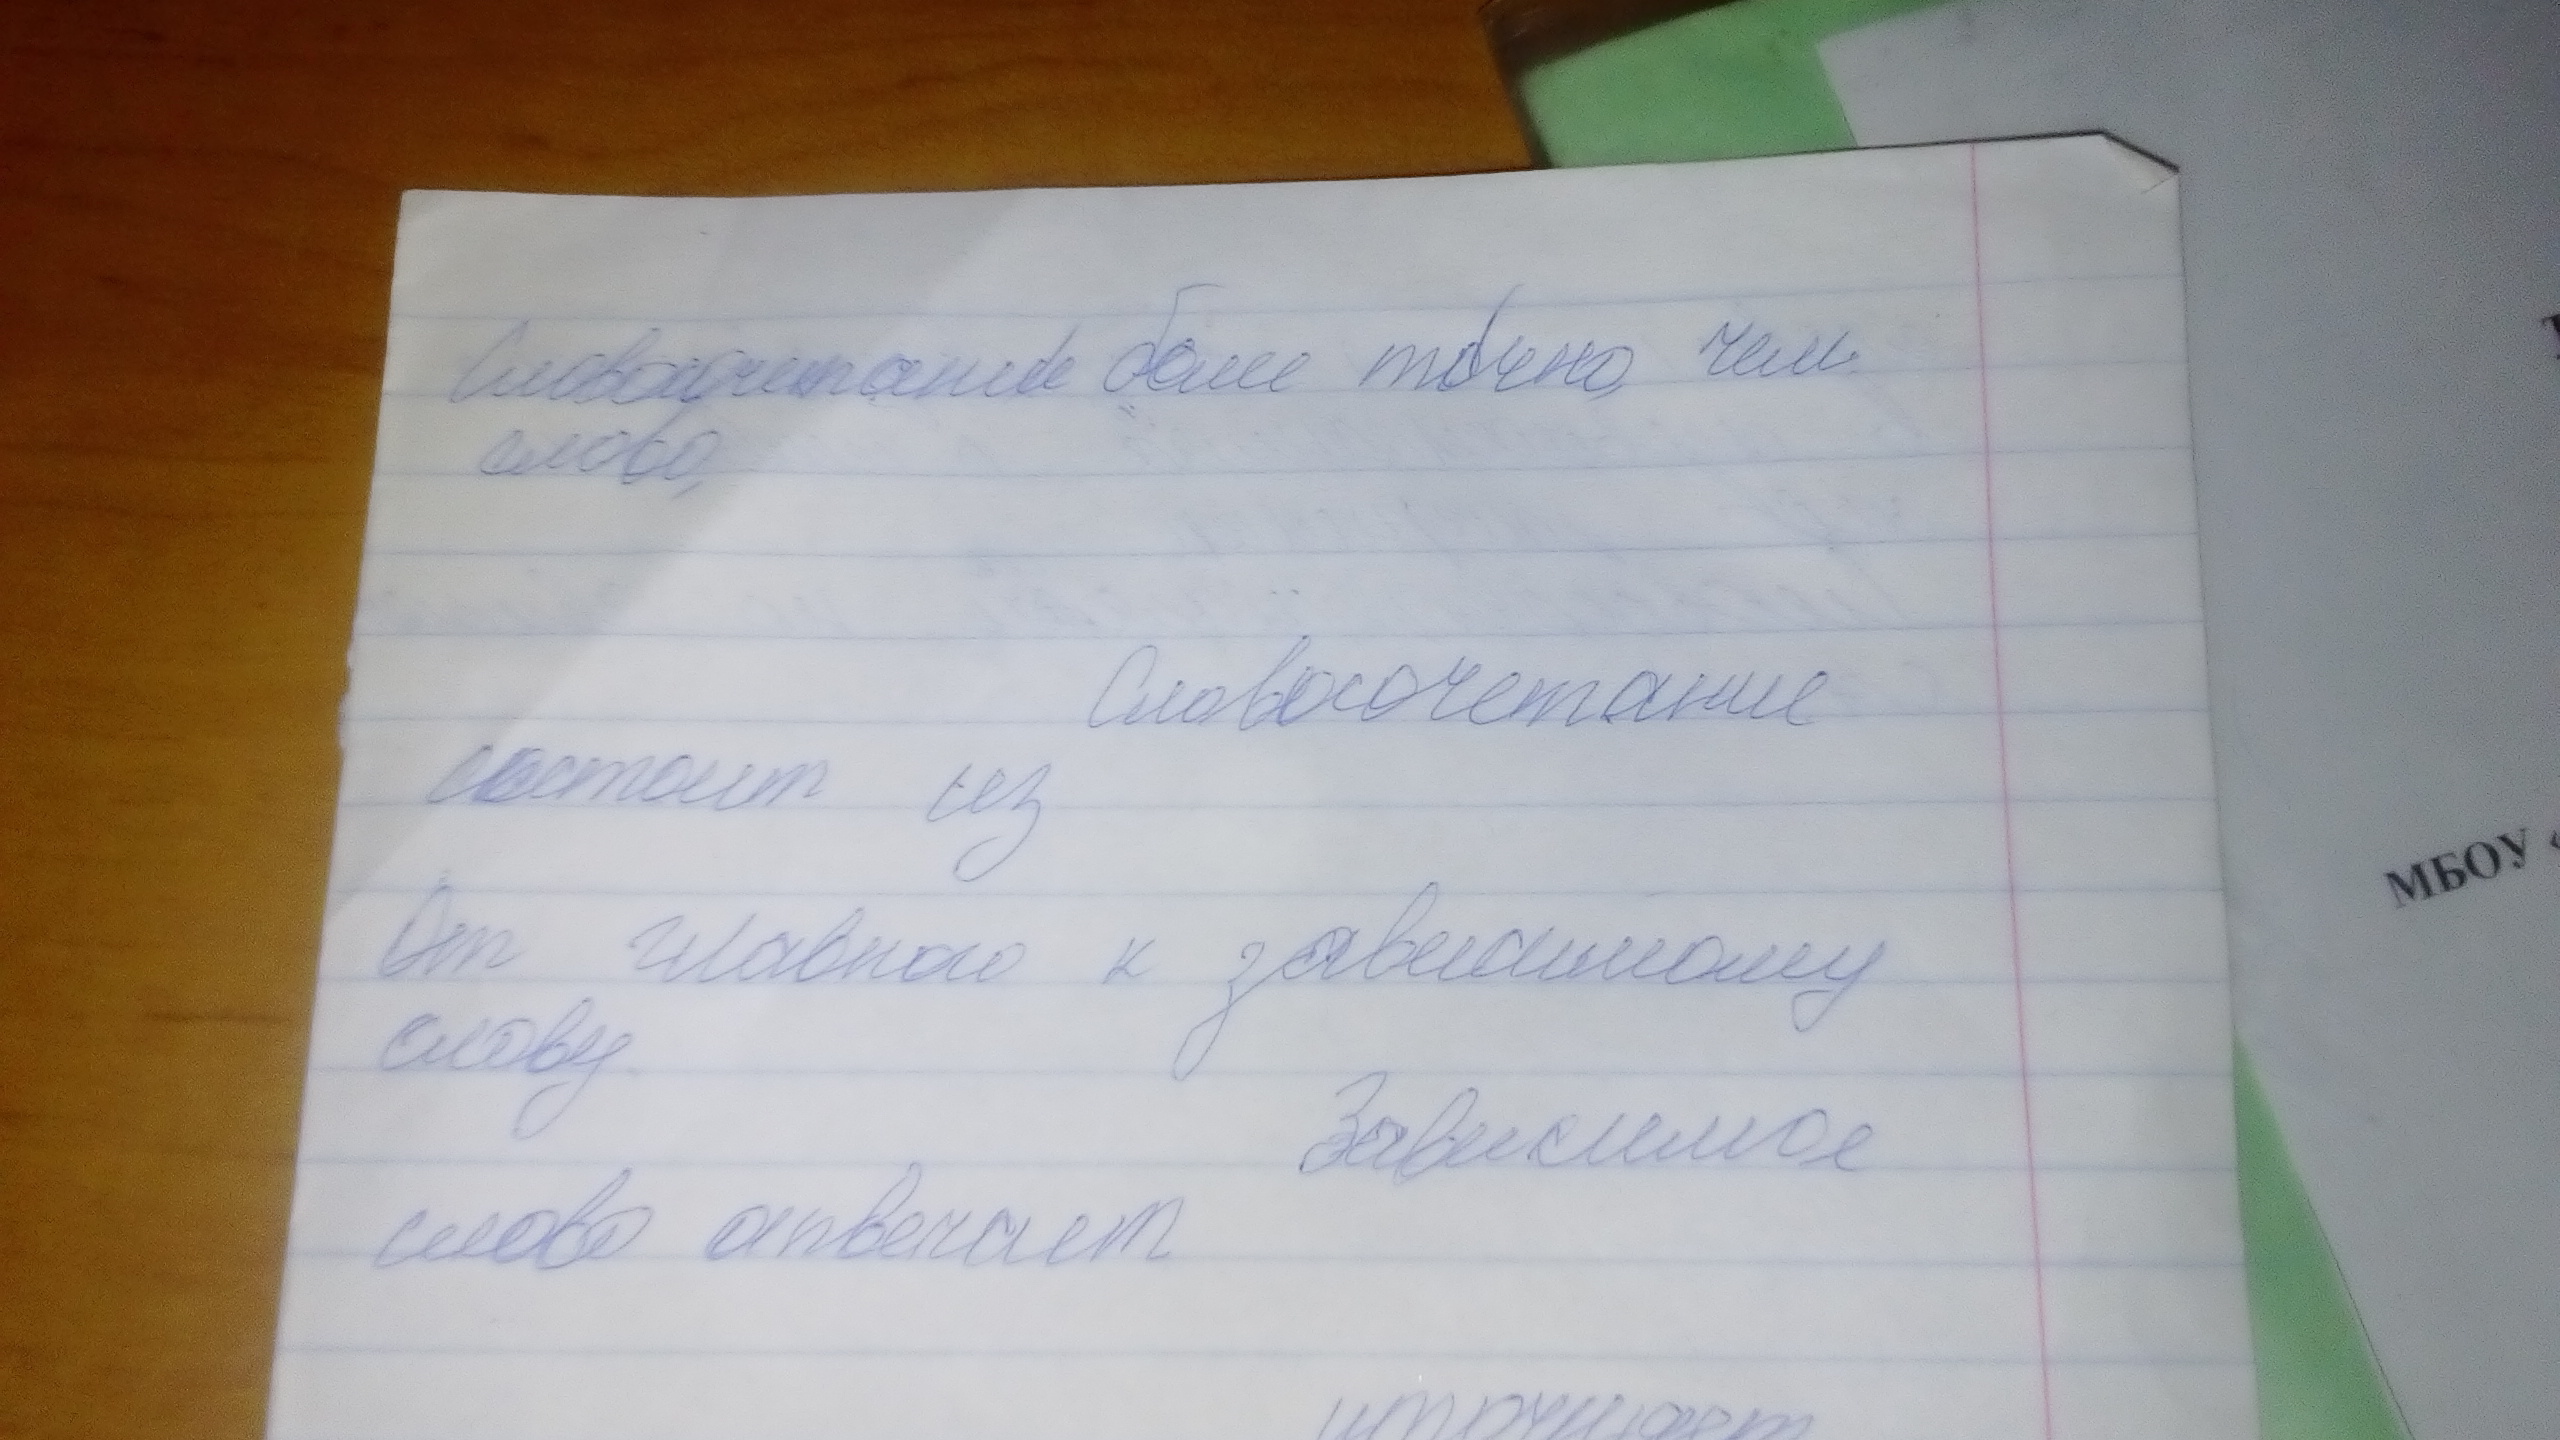 Словосочетание более точно, чем
слово,
Словосочетание
состоит из
От главного к зависимому
слову.
Зависимое
слово отвечает
уточняет
МБОУ «